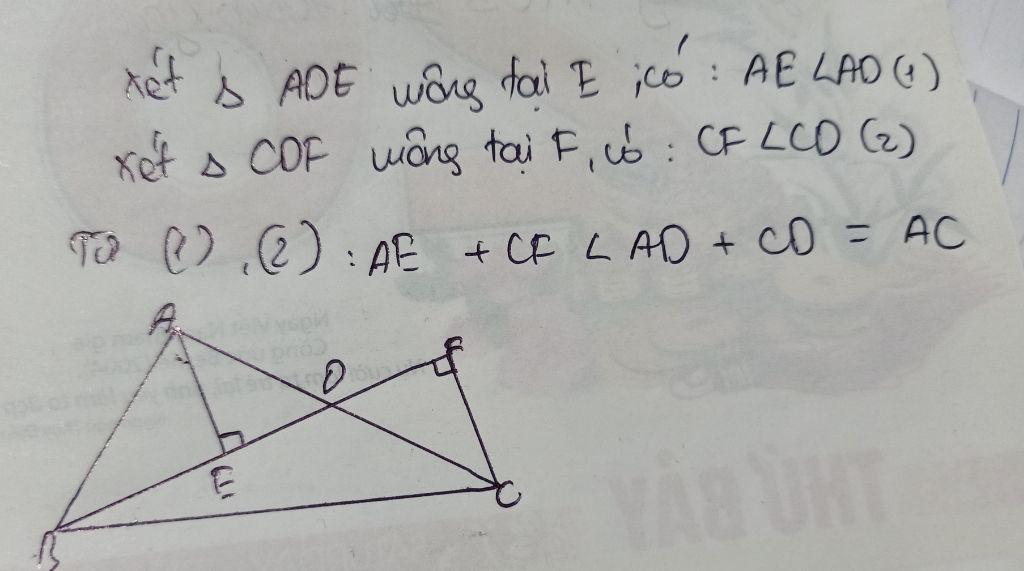 Xét Δ ADE vuông tại E, có : AE < AD (1)
Xét Δ CDF vuông tại F, có : CF < CD (2)
Từ (1), (2) : AE + CF < AD + CD = AC
A
D
F
E
C
B
THỨ BẢY